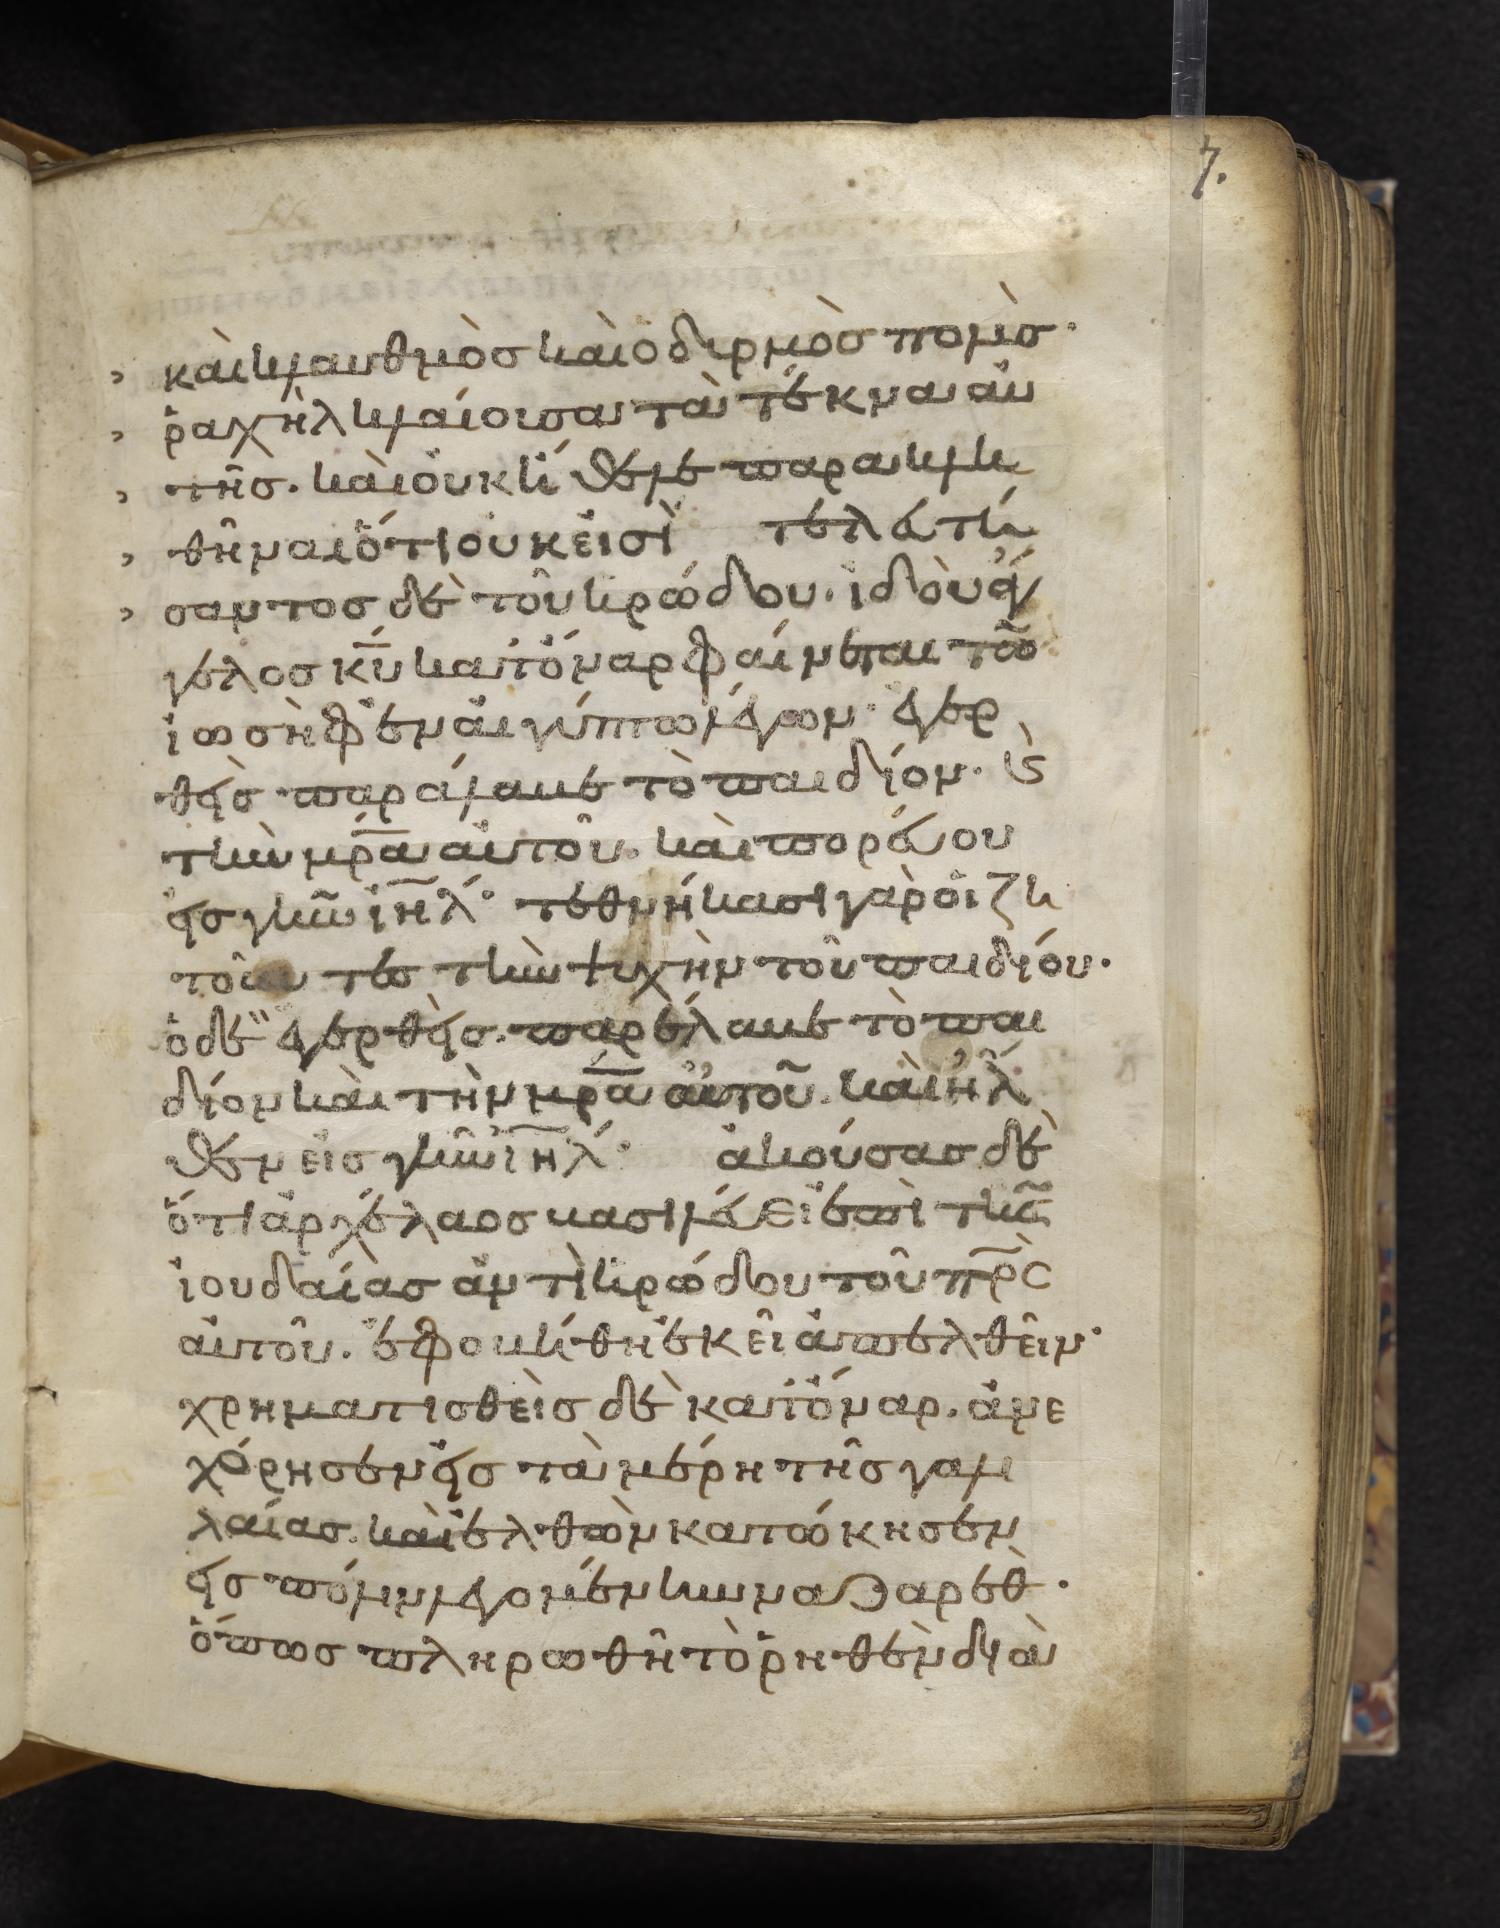 7.
καὶ κλαυθμὸσ καὶ ὀδυρμὸσ πολὺσ·
ῥαχὴλ κλαίουσα τὰ τέκνα αὐ
τῆσ. καὶ οὐκ ἤθελε παρακλη
θῆναι ὅτι οὐκ εἰσὶ τελευτή
σαντοσ δὲ τοῦ ἡρώδου. ἰδοὺ ἄγ
γελοσ κ̅υ̅ κατ᾽ ὄναρ φαίνεται τῶ
ἰωσὴφ ἐν αἰγύπτω λέγων· ἐγερ
θεὶσ παράλαβε τὸ παιδίον· κ̀
τὴν μ̅ρ̅α̅ αὐτοῦ. καὶ πορεύου
εἰσ γῆν ἰ̅η̅λ̅· τεθνήκασι γὰρ οἱ ζη
τοῦντεσ τὴν ψυχὴν τοῦ παιδίου·
ὁ δὲ ἐγερθεὶσ. παρέλαβε τὸ παι
δίον καὶ τὴν μ̅ρ̅α̅ αὐτοῦ. καὶ ἦλ
θεν εἰσ γῆν ἰ̅η̅λ̅· ἀκούσασ δὲ
ὅτι ἀρχέλαοσ βασιλεύει ἐπὶ τῆσ
ἰουδαίασ ἀντὶ ἡρώδου τοῦ π̅ρ̅σ̅
αὐτοῦ. ἐφοβήθη ἐκεῖ ἀπελθεῖν·
χρηματισθεὶσ δὲ κατ᾽ ὄναρ. ἀνε
χώρησεν εἰσ τὰ μέρη τῆσ γαλι
λαίασ. καὶ ἐλθὼν κατώκησεν
εἰσ πόλιν λεγομένην ναζαρέθ·
ὅπωσ πληρωθῆ τὸ ῥηθὲν διὰ